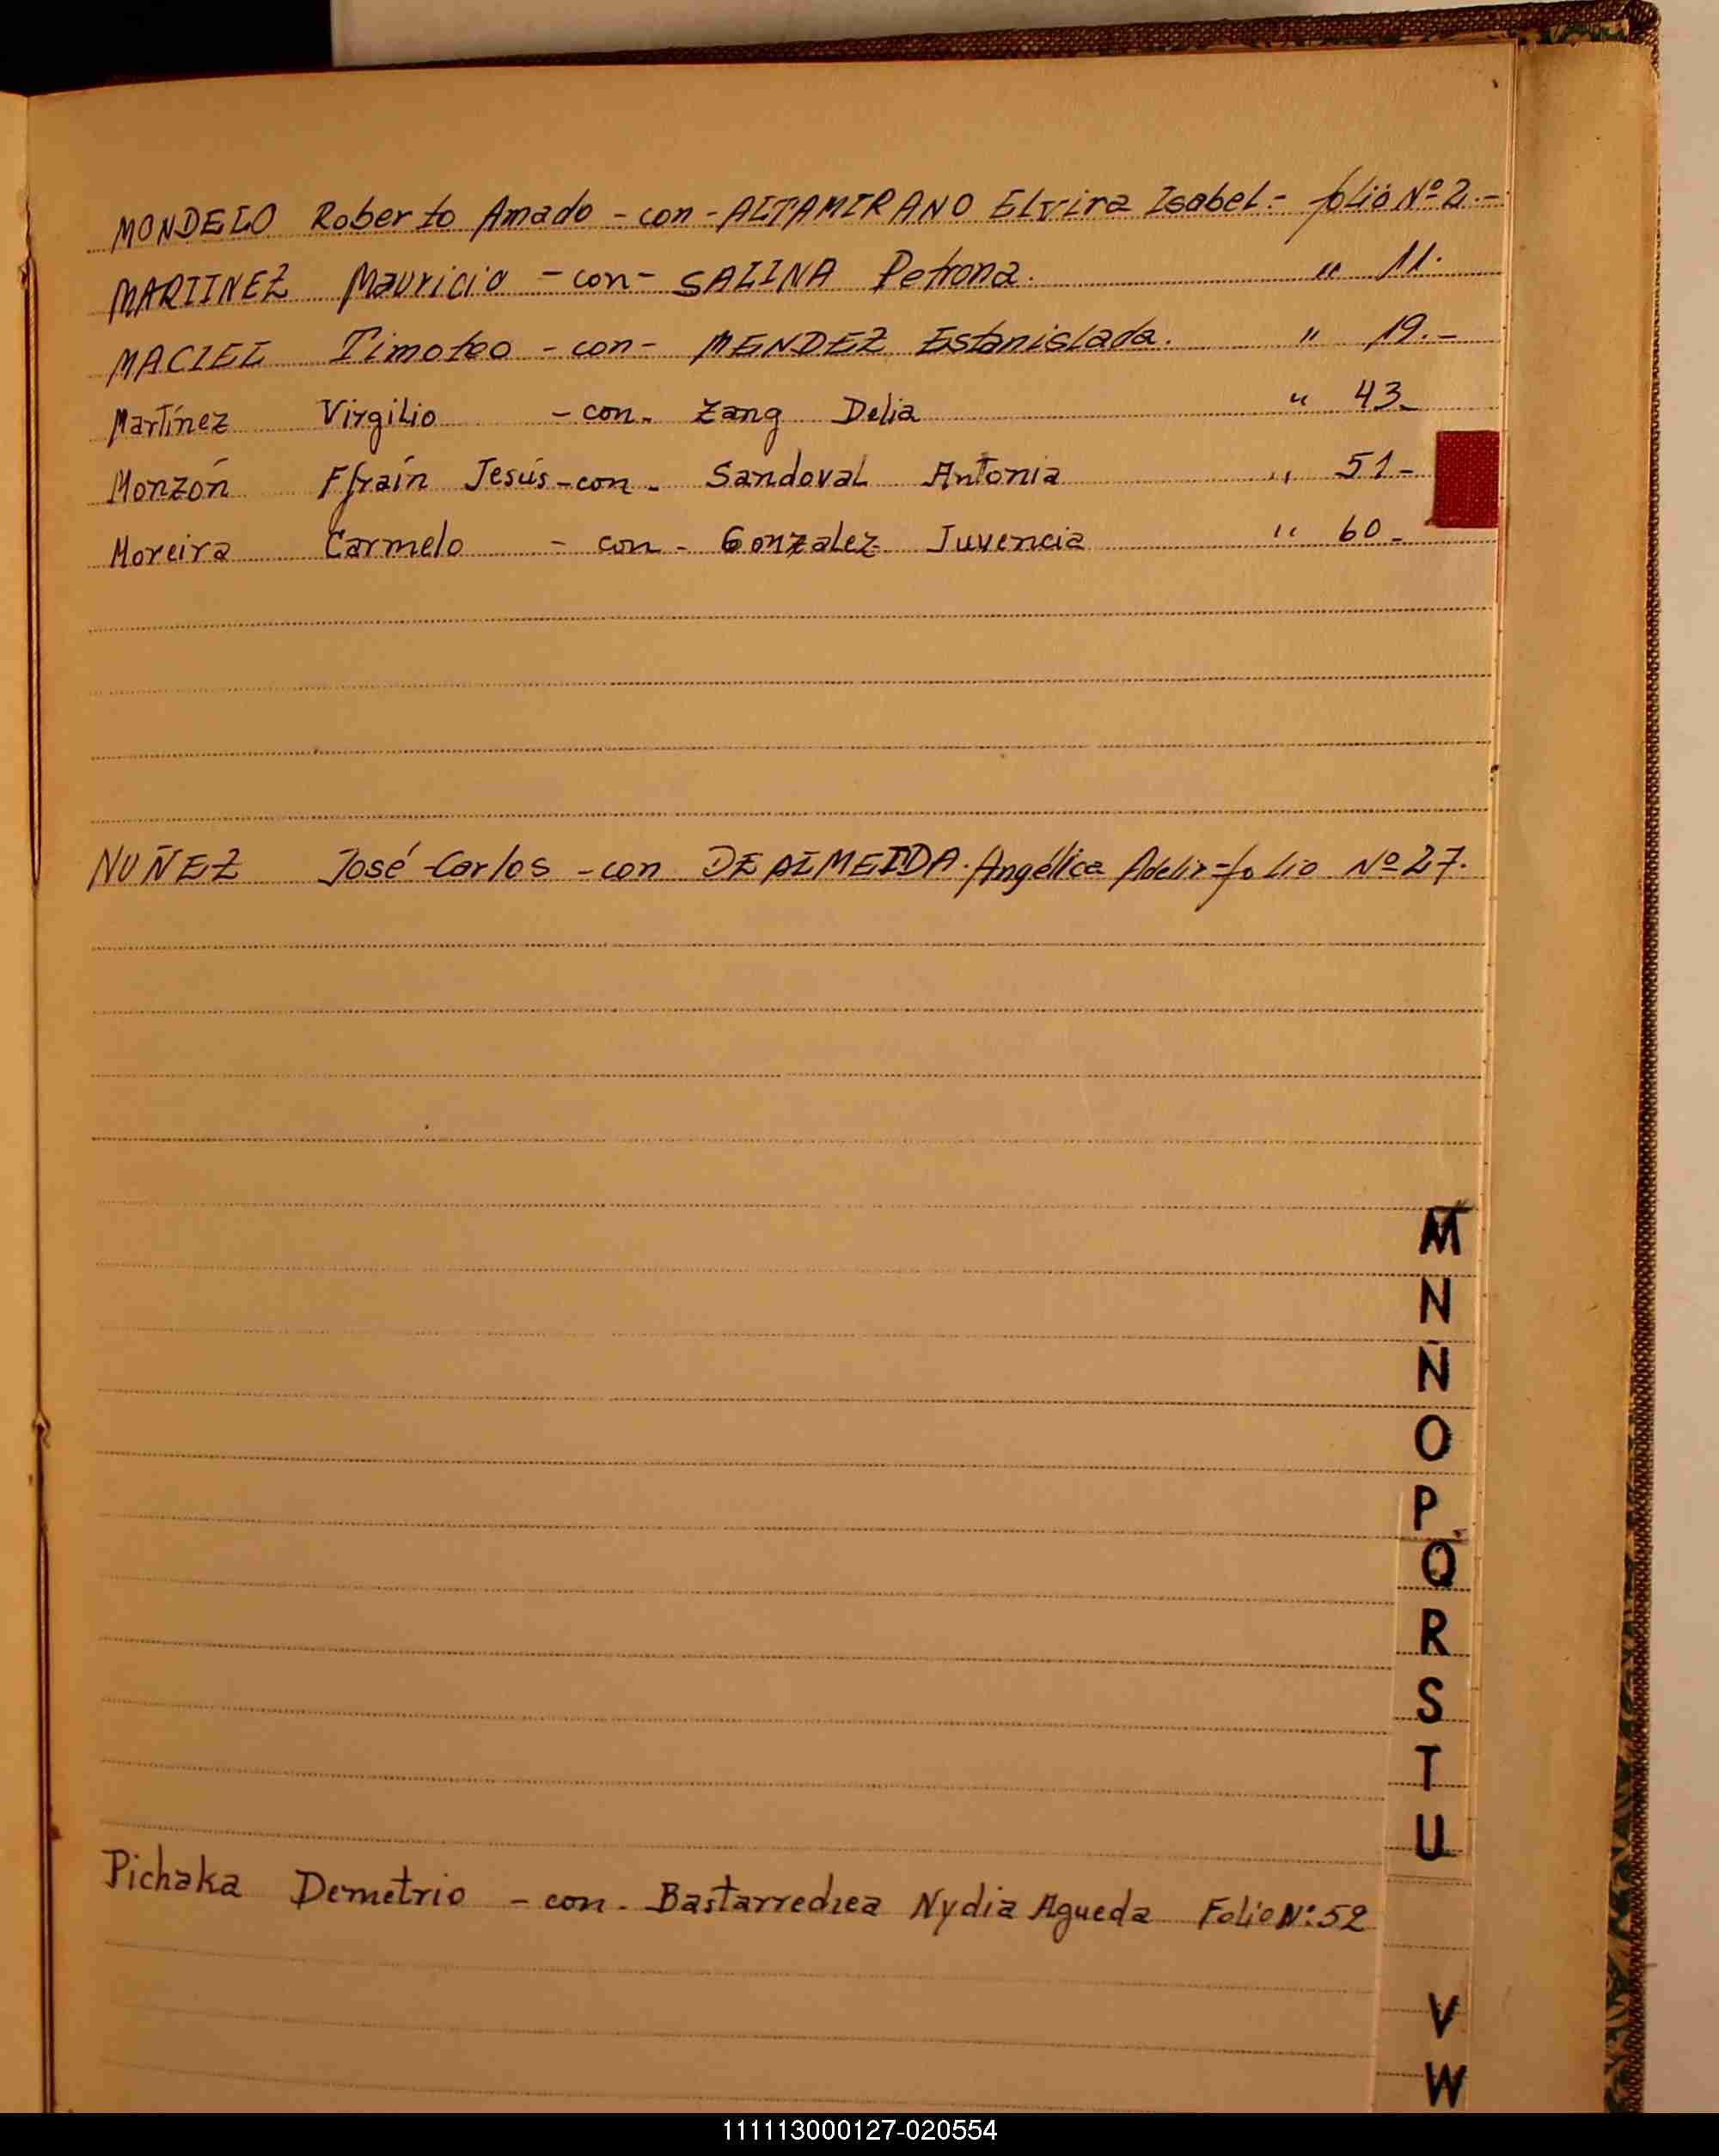 MONDELO Roberto Amado - con - ALTAMIRANO Elvira Isabel - folio Nº 2.-
MARTINEZ Mauricio - con - SALINA Petrona. " 11.
MACIEL Timoteo - con - MENDEZ Estanislada. " 19.-
Martínez Virgilio - con - Zang Delia " 43-
Monzón Efraín Jesús - con - Sandoval Antonia " 51-
Moreira Carmelo - con - Gonzalez Juvencia " 60-
NUÑEZ José Carlos - con DE ALMEIDA Angélica - folio Nº 27.
M
N
Ñ
O
P
Q
R
S
T
U
Pichaka Demetrio - con - Bastarredrea Nydia Agueda Folio Nº: 52
V
W
111113000127-020554